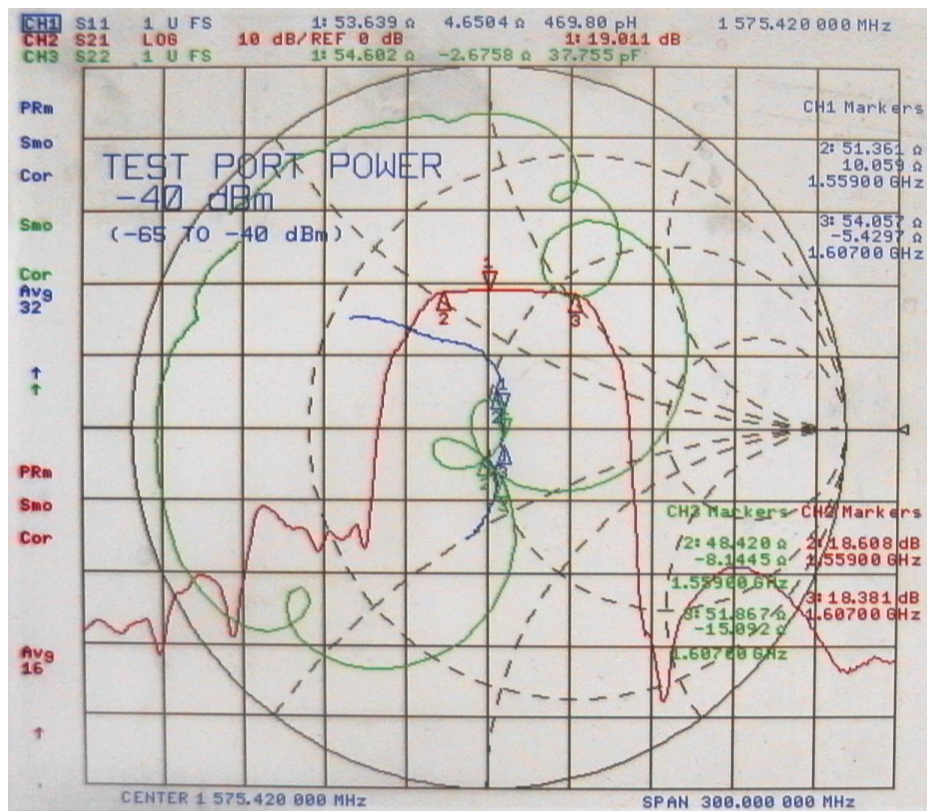 CH1 S11 1 U FS 1: 53.639 Ω 4.6504 Ω 469.80 pH 1 575.420 000 MHz
CH2 S21 LOG 10 dB/REF 0 dB 1: 19.011 dB
CH3 S22 1 U FS 1: 54.602 Ω -2.6758 Ω 37.755 pF
PRm
Smo
Cor
Smo
Cor
Avg
32
↑
↑
PRm
Smo
Cor
Avg
16
↑
TEST PORT POWER
-40 dBm
(-65 TO -40 dBm)
CH1 Markers
2: 51.361 Ω
10.059 Ω
1.55900 GHz
3: 54.057 Ω
-5.4297 Ω
1.60700 GHz
1
2
3
1
2
3
CH3 Markers
2: 48.420 Ω
-8.1445 Ω
1.55900 GHz
3: 51.867 Ω
-15.092 Ω
1.60700 GHz
CH2 Markers
2: 18.608 dB
1.55900 GHz
3: 18.381 dB
1.60700 GHz
CENTER 1 575.420 000 MHz SPAN 300.000 000 MHz